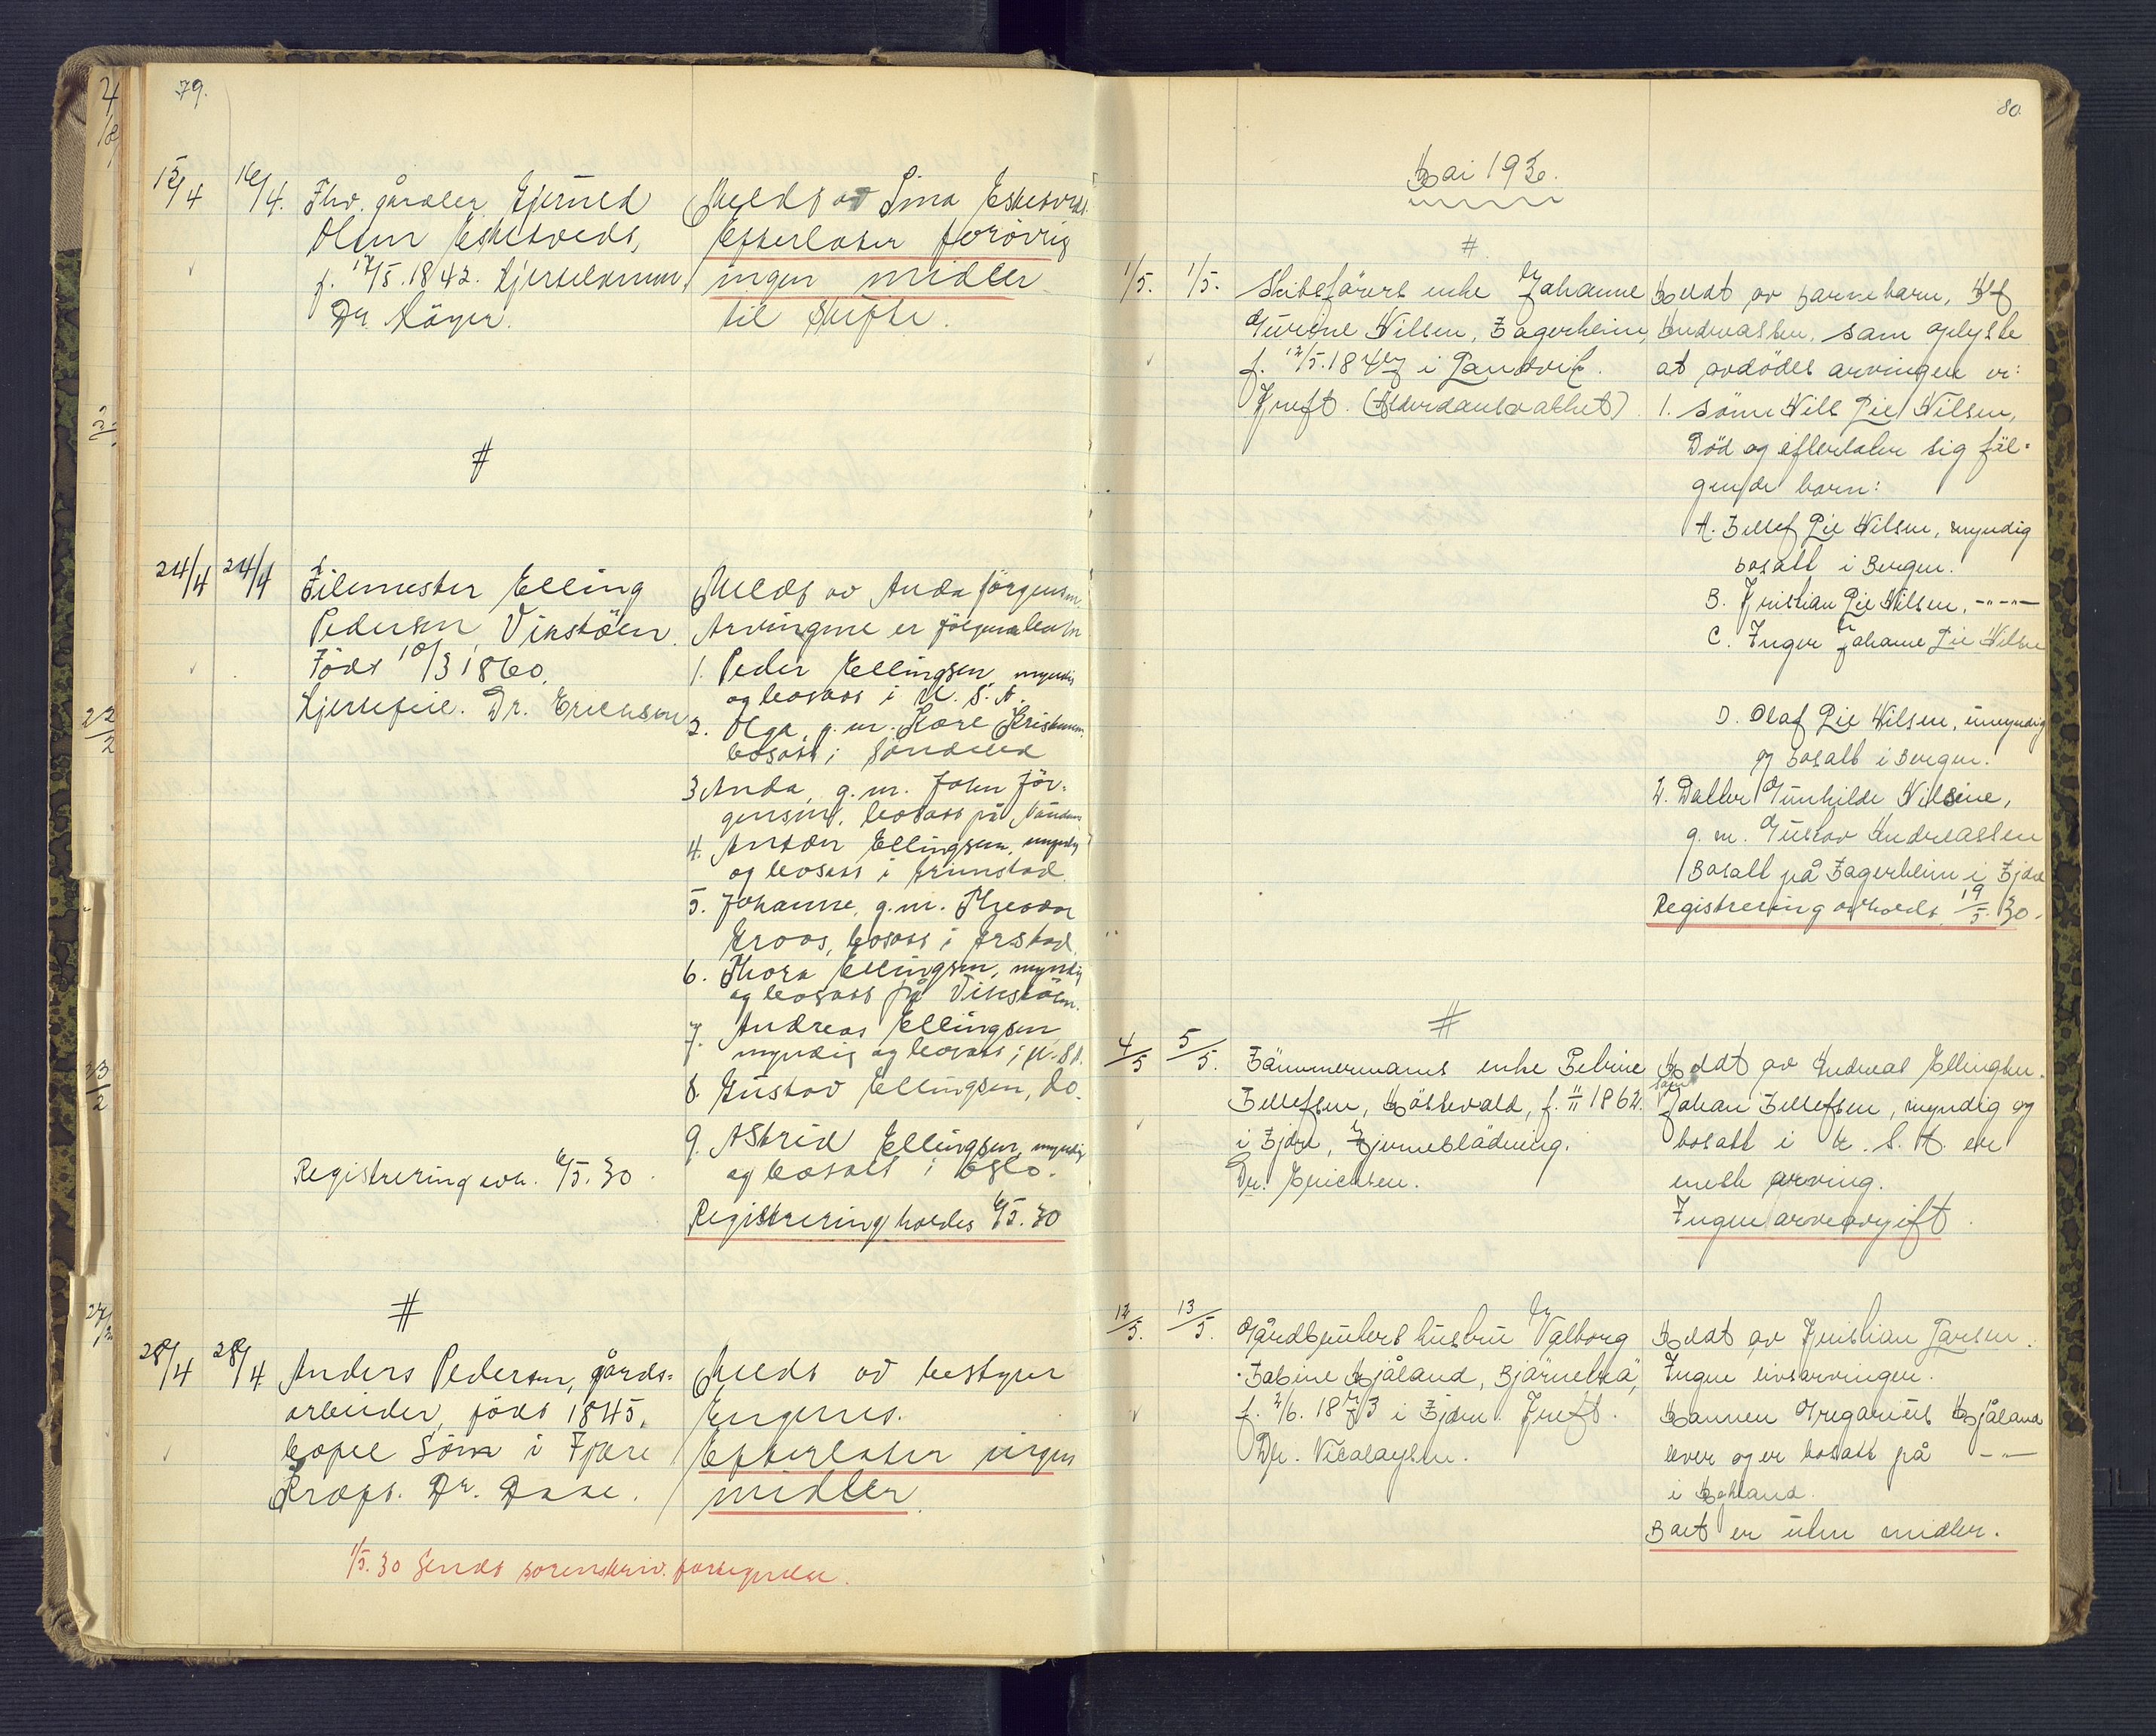 79.
15/4 16/4. Fhv. gårdbr. Gjeruld
Olsen Eskedveds,
f. 12/5.1842. Hjertelammm.
Dr. Röyer.
Meldt av Sina Eskedveds.
Efterlater forövrig
ingen midler
til Skifte.
#
24/4 24/4 Seilmester Elling
Pedersen, Vikstölen
Föds 10/3 1860.
Hjertefeil. Dr. Erichsen
Meldt av Anda Jörgensen.
Arvingene er fölgende barn
1. Peder Ellingsen, myndig
og bosatt i U. S. A.
2. Olga, g. m. Kristensen,
bosatt i
3. Anda, g. m. John Jör-
gensen, bosatt på
4. Anton Ellingsen, myndig
og bosatt i Grimstad.
5. Johanne, g.m. Theodor
Kroos, bosatt i
6. Thora Ellingsen, myndig
og bosatt på Vikstölen.
7. Andreas Ellingsen
myndig og bosatt i U. S A.
8. Gustav Ellingsen, do.
9. Astrid Ellingsen, myndig
og bosatt i Oslo.
Registrering avh. 6/5.30
Registrering holdes 6/5.30
#
28/4 28/4 Anders Pedersen, gårds-
arbeider, föds 1845,
i Fjære
Dr.
Meldt av bestyrer
Engenes.
Efterlater ingen
midler.
1/5.30 Sendt sorenskriv. fortegnelse.
80
Mai 1930.
#
1/5. 1/5. Skibsförers enke Johanne
Gurine Nilsen, Fagerheim,
f. 12/5.1847 i Landvik.
Kreft. (Alderdomssvakhet).
Meldt av barnebarn, Alf
Andreassen, som oplyste
at avdödes arvinger er:
1. Sönn Nils Pie Nilsen,
Död og efterlater sig föl-
gende barn:
A. Tellef Pie Nilsen, myndig
bosatt i Bergen.
B. Kristian Pie Nilsen, -"-"-
C. Inger Johanne Pie Nilsen
D. Olaf Pie Nilsen, umyndig
og bosatt i Bergen.
2. Datter Gunhilde Nilsine,
g. m. Gustav Andreassen
Bosatt på Fagerheim i Fjære
Registrering avholdt 19/5. 30.
#
4/5 5/5. Tömmermanns enke Beline
Tellefsen, Mössevold, f. 1862.
i Fjære, Hjerneblödning.
Dr. Erichsen.
Meldt av Andreas Ellingsen.
Sönn Johan Tellefsen, myndig og
bosatt i U. S. A. er
eneste arving.
Ingen arveavgift.
12/5. 13/5. Gårdbrukers hustru Valborg
Tabine Mjåland, Bjørneknä,
f. 2/6. 1873 i Fjære. Kreft.
Dr. Nicolaysen.
Meldt av Kristian Larsen.
Ingen livsarvinger.
Mannen Gregarius Mjåland
lever og er bosatt på -"-
i
Boet er uten midler.